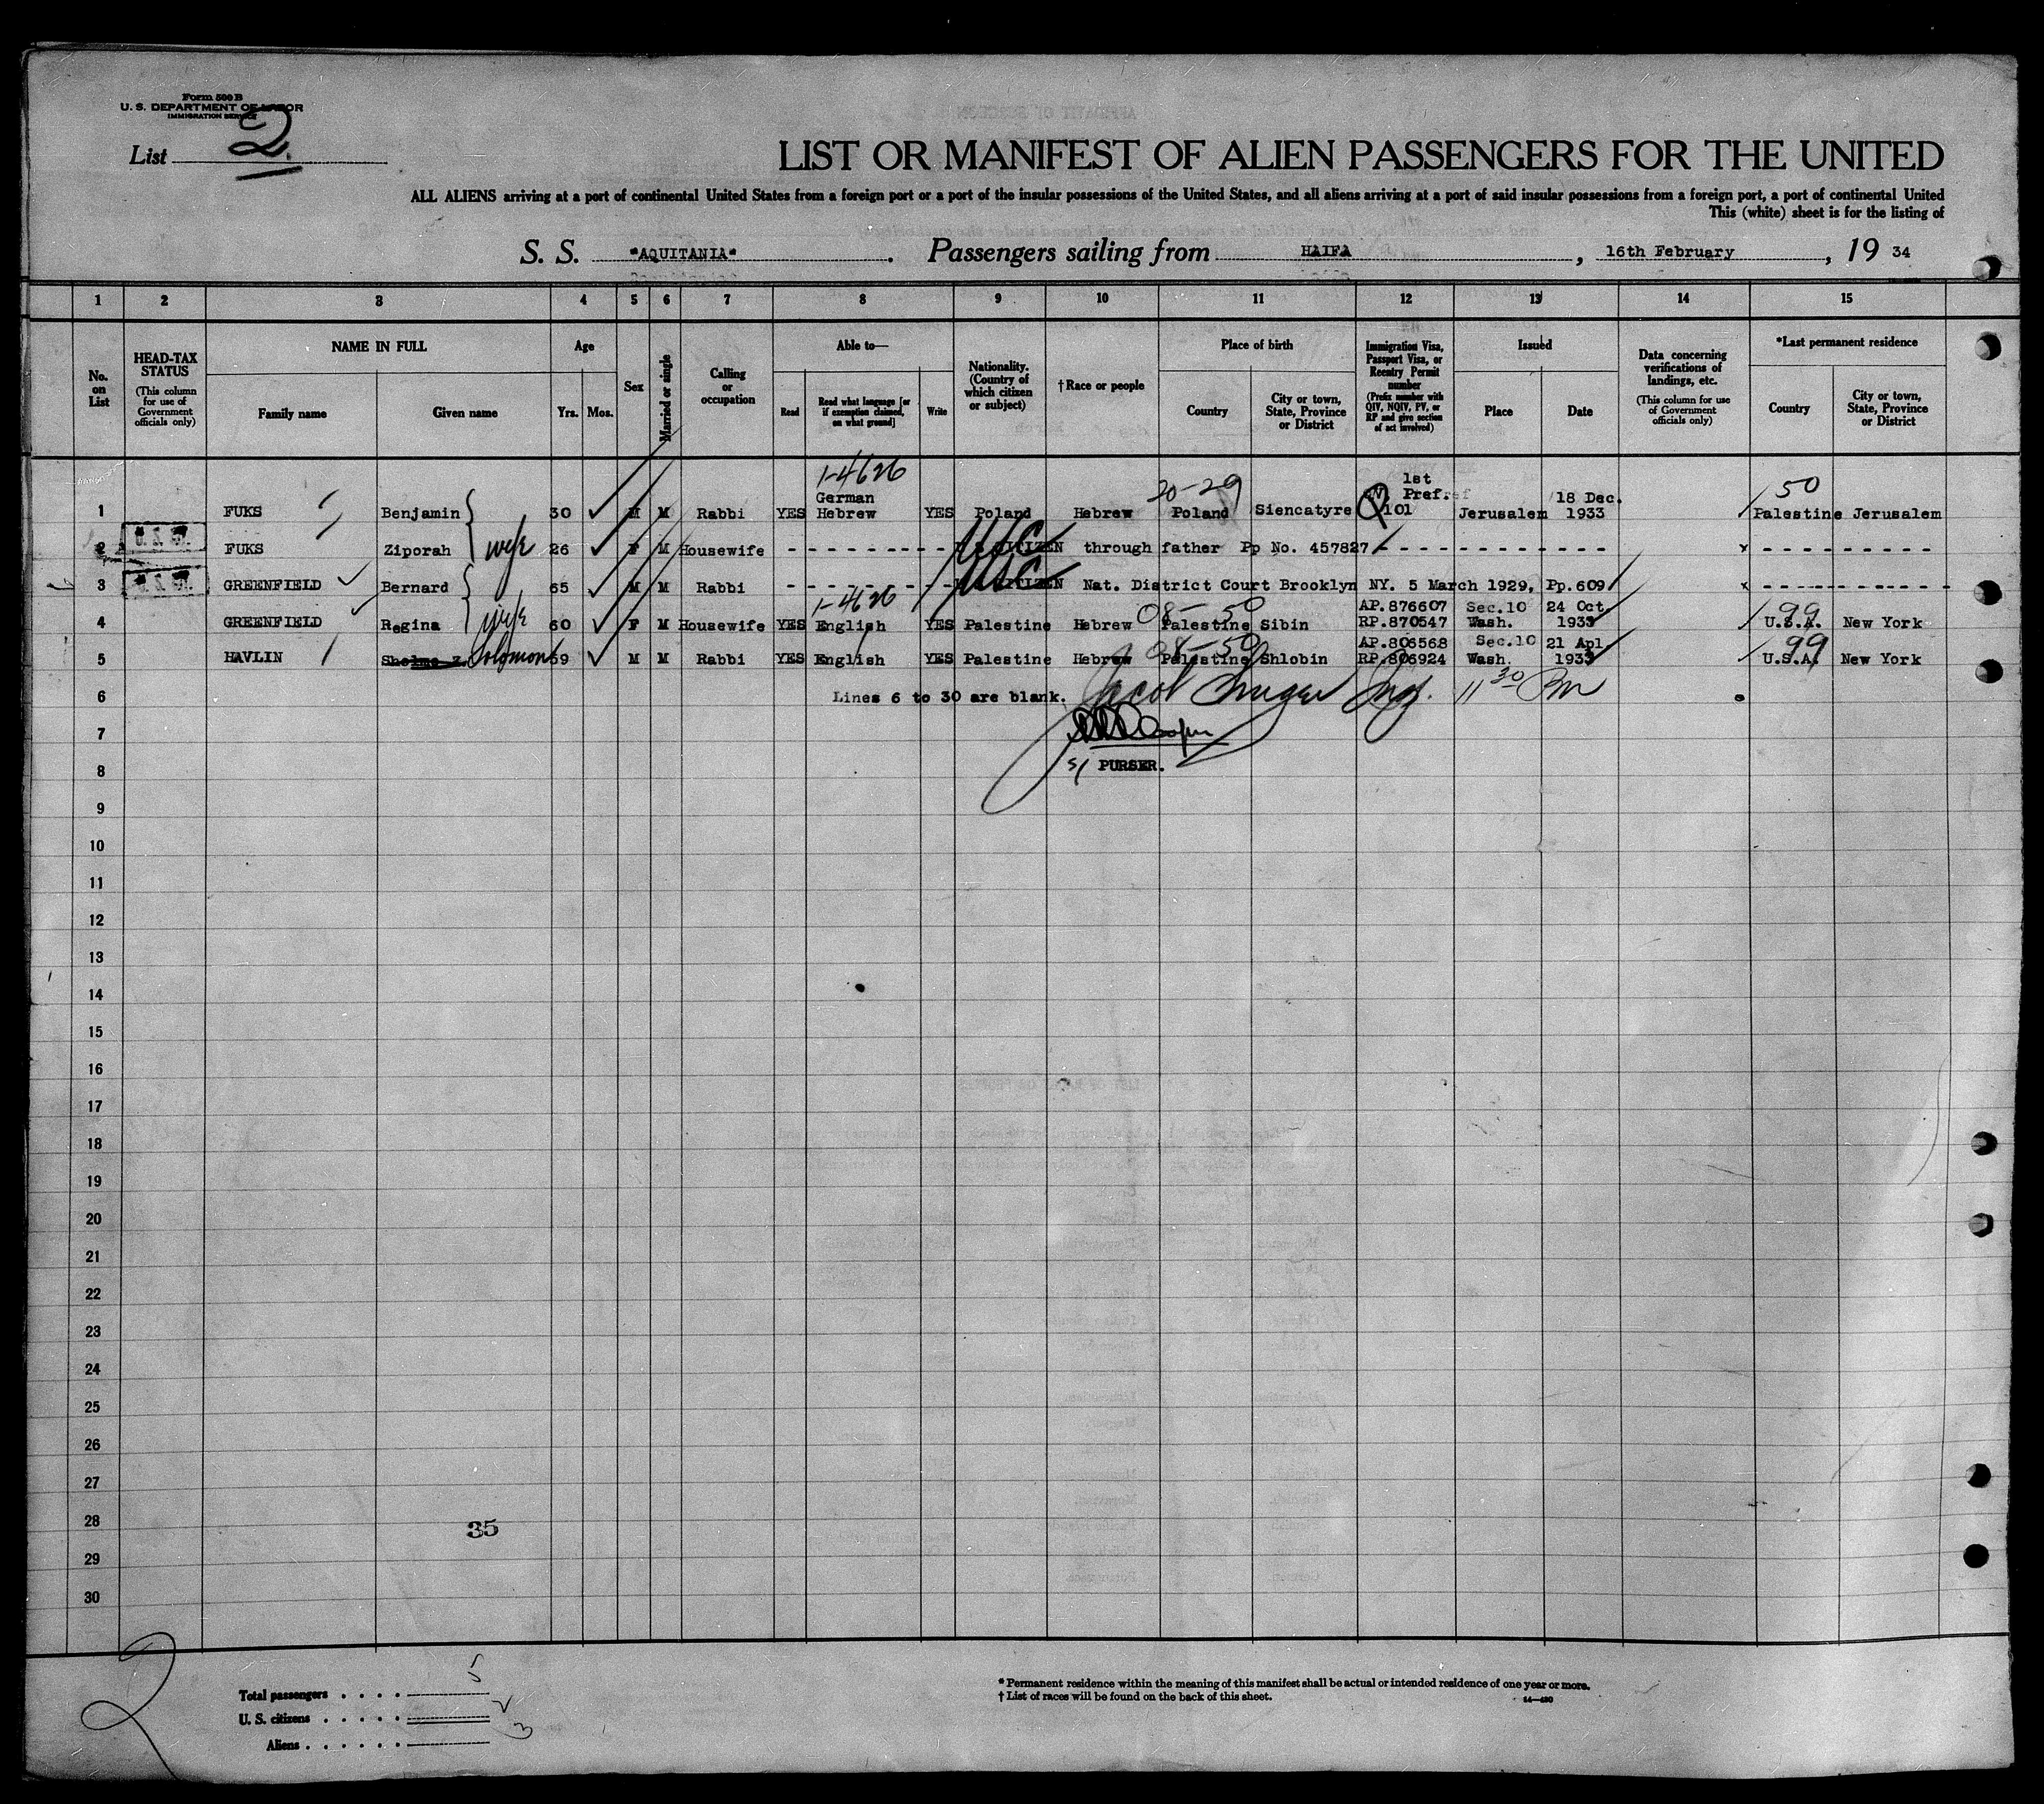 Form 500 B
U. S. DEPARTMENT OF LABOR
IMMIGRATION SERVICE
List 2.
LIST OR MANIFEST OF ALIEN PASSENGERS FOR THE UNITED
ALL ALIENS arriving at a port of continental United States from a foreign port or a port of the insular possessions of the United States, and all aliens arriving at a port of said insular possessions from a foreign port, a port of continental United
This (white) sheet is for the listing of
S. S. "AQUITANIA". Passengers sailing from HAIFA, 16th February, 19 34
1 2 3 4 5 6 7 8 9 10 11 12 13 14 15
No. on List
HEAD-TAX STATUS (This column for use of Government officials only)
NAME IN FULL Family name Given name
Age Yrs. Mos.
Sex
Married or single
Calling or occupation
Able to— Read Read what language [or if exemption claimed, on what ground] Write
Nationality. (Country of which citizen or subject)
† Race or people
Place of birth Country City or town, State, Province or District
Immigration Visa, Passport Visa, or Reentry Permit number (Prefix number with QIV, NQIV, PV, or RP and give section of act involved)
Issued Place Date
Data concerning verifications of landings, etc. (This column for use of Government officials only)
*Last permanent residence Country City or town, State, Province or District
1-4626 20-29 1st 50
German Pref. 18 Dec.
1 FUKS Benjamin 30 M M Rabbi YES Hebrew YES Poland Hebrew Poland Siencatyre Q 101 Jerusalem 1933 Palestine Jerusalem
2 U.S. FUKS Ziporah wife 26 F M Housewife USC CITIZEN through father Pp No. 457827 x
3 U.S. GREENFIELD Bernard 65 M M Rabbi USC CITIZEN Nat. District Court Brooklyn NY. 5 March 1929, Pp.609 x
1-4626 08-50 AP.876607 Sec.10 24 Oct. 99
4 GREENFIELD Regina wife 60 F M Housewife YES English YES Palestine Hebrew Palestine Sibin RP.870547 Wash. 1933 U.S.A. New York
08-50 AP.806568 Sec.10 21 Apl. 99
5 HAVLIN Sholmo Z. Solomon 59 M M Rabbi YES English YES Palestine Hebrew Palestine Shlobin RP.806924 Wash. 1933 U.S.A. New York
6 Lines 6 to 30 are blank. Jacob 11 30 PM
7
s/ PURSER.
8
9
10
11
12
13
14
15
16
17
18
19
20
21
22
23
24
25
26
27
28
35
29
30
2
Total passengers 5
U. S. citizens 2
Aliens 3
* Permanent residence within the meaning of this manifest shall be actual or intended residence of one year or more.
† List of races will be found on the back of this sheet.
14—430